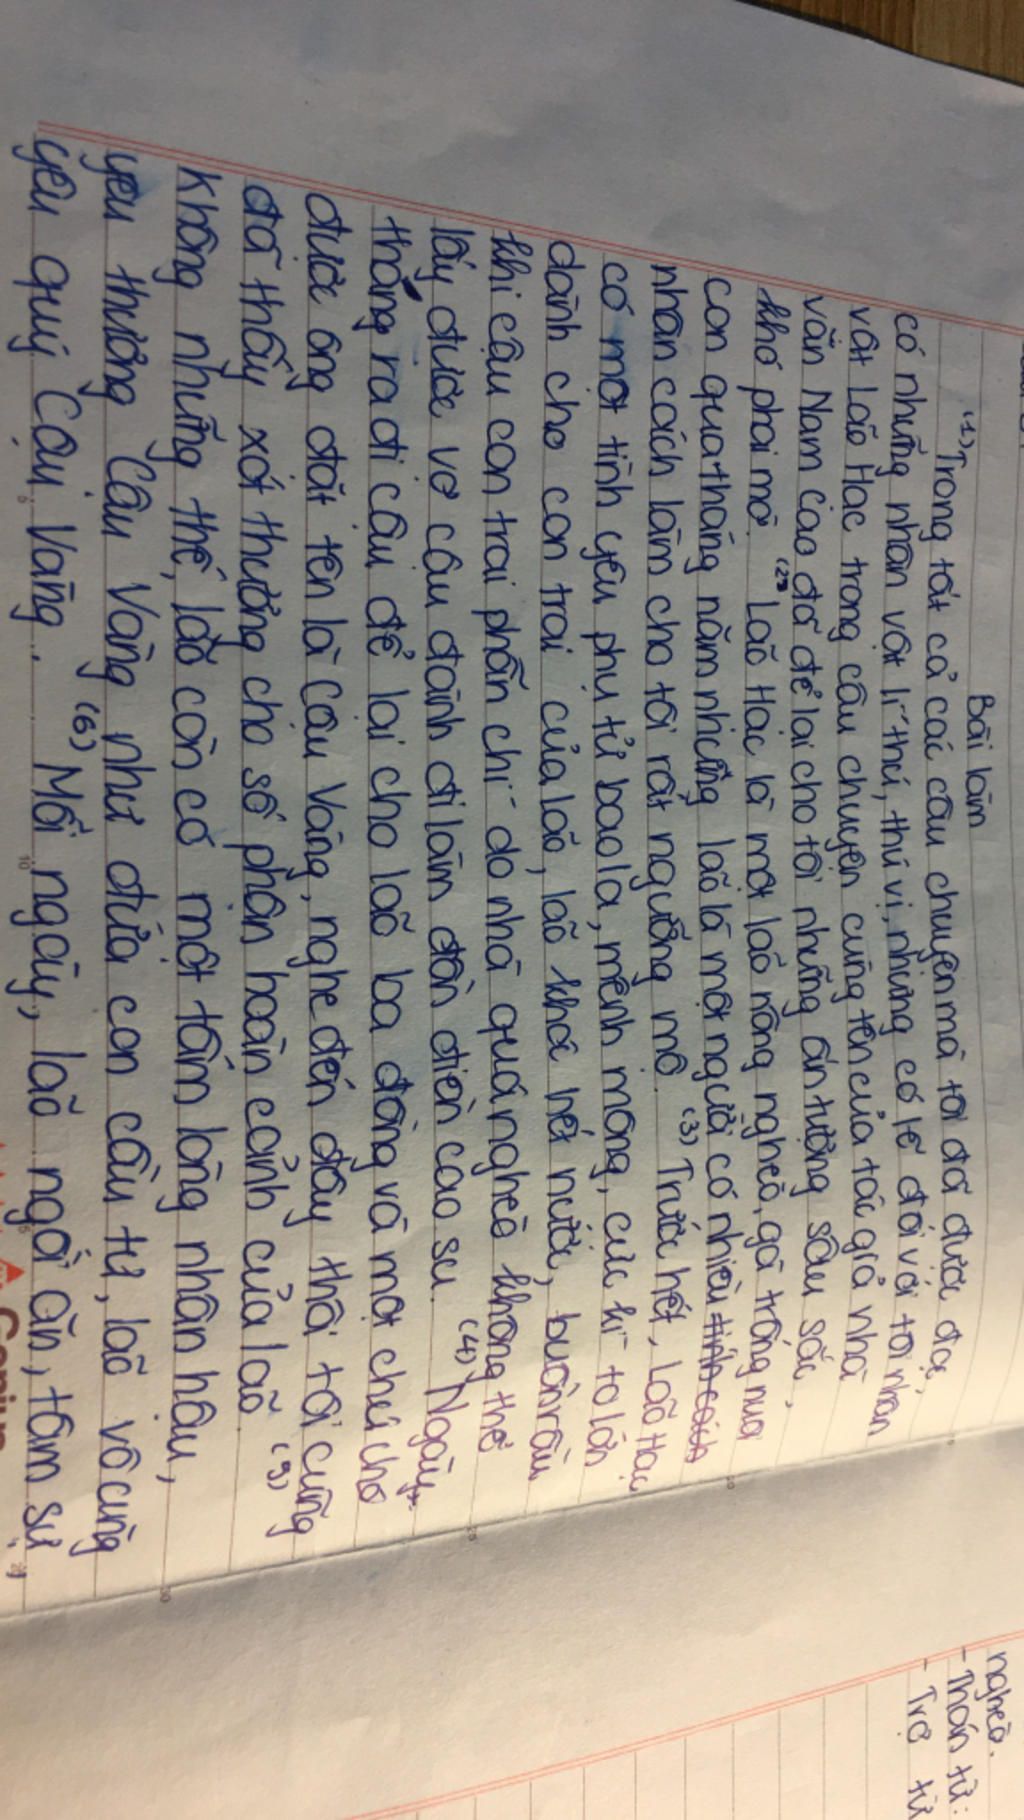 Bài làm
(1) Trong tất cả các câu chuyện mà tôi đã được đọc,
có những nhân vật lí thú, thú vị, nhưng có lẽ đối với tôi nhân
vật Lão Hạc trong câu chuyện cùng tên của tác giả nhà
văn Nam Cao đã để lại cho tôi những ấn tượng sâu sắc,
khó phai mờ. (2) Lão Hạc là một lão nông nghèo, gà trống nuôi
con qua tháng năm nhưng lão là một người có nhiều tính cách
nhân cách làm cho tôi rất ngưỡng mộ. (3) Trước hết, Lão Hạc
có một tình yêu phụ tử bao la, mênh mông, cực kì to lớn
dành cho con trai của lão, lão khóc hết nước, buồn rầu
khi cậu con trai phẫn chí do nhà quá nghèo không thể
lấy được vợ cậu đành đi làm đồn điền cao su. (4) Ngày
thằng ra đi cậu để lại cho lão ba đồng và một chú chó
được ông đặt tên là Cậu Vàng, nghe đến đây thôi tôi cũng
đã thấy xót thương cho số phận hoàn cảnh của lão. (5)
Không những thế, lão còn có một tấm lòng nhân hậu,
yêu thương Cậu Vàng như đứa con cầu tự, lão vô cùng
yêu quý Cậu Vàng. (6) Mỗi ngày, lão ngồi ăn, tâm sự,
nghèo.
- Thán từ:
- Trợ từ